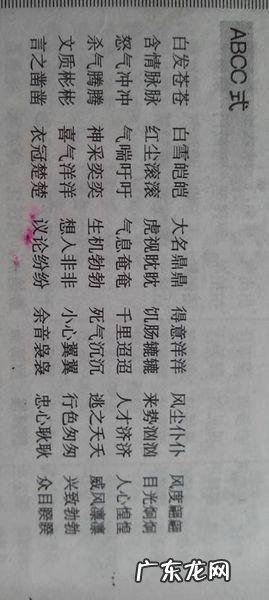 ABCC 式
白发苍苍 白雪皑皑 大名鼎鼎 得意洋洋 风尘仆仆 风度翩翩
含情脉脉 红尘滚滚 虎视眈眈 饥肠辘辘 来势汹汹 目光炯炯
怒气冲冲 气喘吁吁 气息奄奄 千里迢迢 人才济济 人心惶惶
杀气腾腾 神采奕奕 生机勃勃 死气沉沉 逃之夭夭 威风凛凛
文质彬彬 喜气洋洋 想入非非 小心翼翼 行色匆匆 兴致勃勃
言之凿凿 衣冠楚楚 议论纷纷 余音袅袅 忠心耿耿 众目睽睽
广东龙网